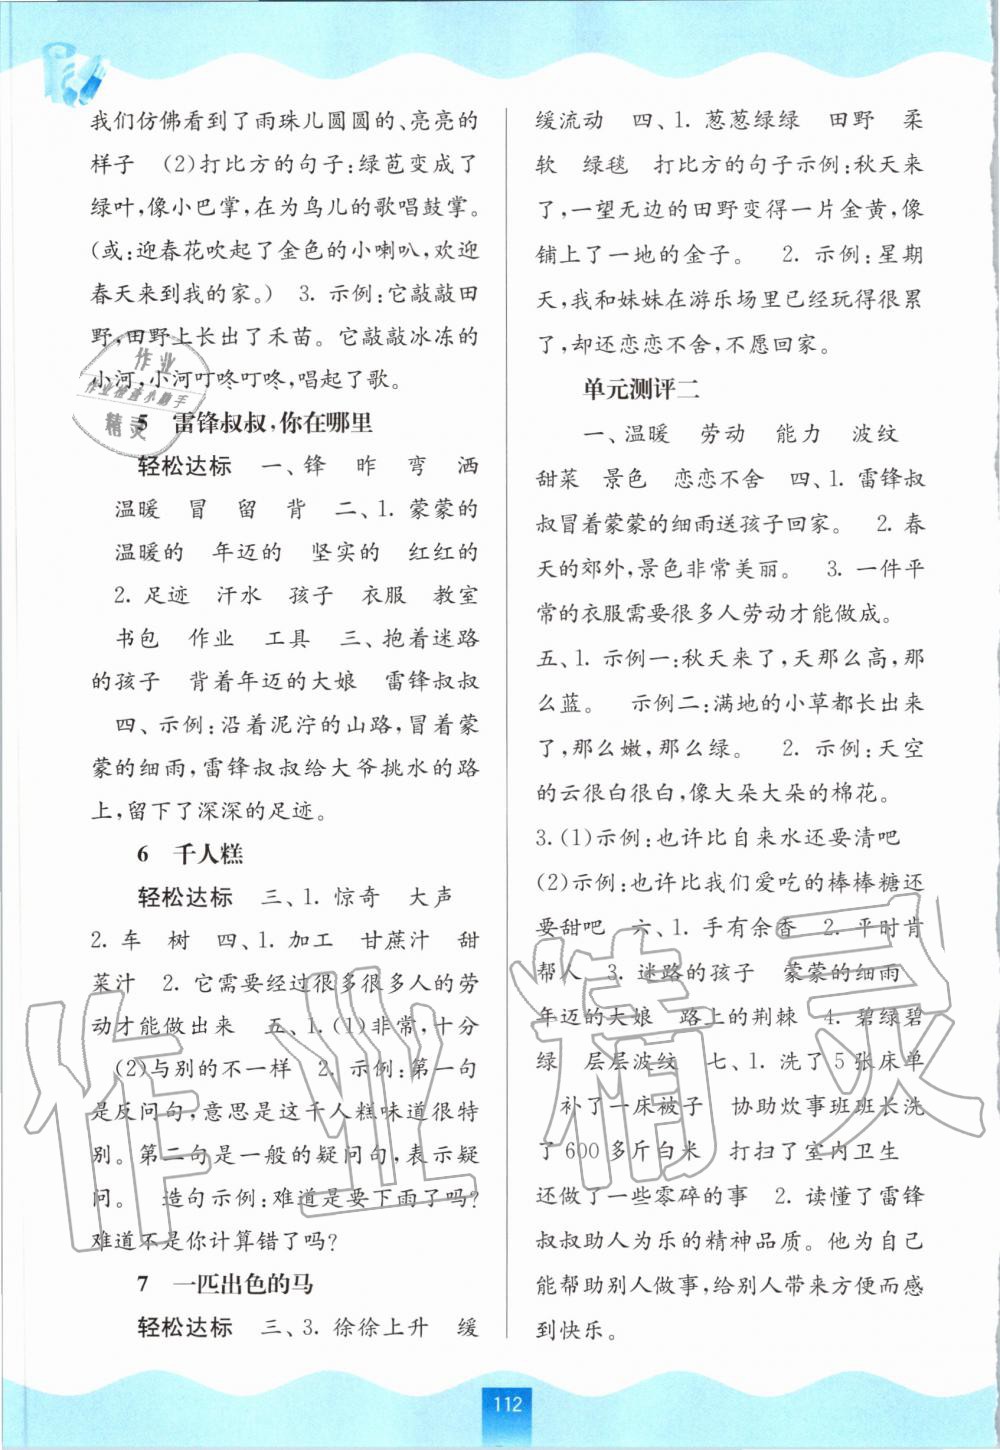 我们仿佛看到了雨珠儿圆圆的、亮亮的
样子　(2)打比方的句子:绿苞变成了
绿叶,像小巴掌,在为鸟儿的歌唱鼓掌。
(或:迎春花吹起了金色的小喇叭,欢迎
春天来到我的家。)　3. 示例:它敲敲田
野,田野上长出了禾苗。它敲敲冰冻的
小河,小河叮咚叮咚,唱起了歌。
5　雷锋叔叔,你在哪里
轻松达标　一、锋　昨　弯　洒
温暖　冒　留　背　二、1. 蒙蒙的
温暖的　年迈的　坚实的　红红的
2. 足迹　汗水　孩子　衣服　教室
书包　作业　工具　三、抱着迷路
的孩子　背着年迈的大娘　雷锋叔叔
四、示例:沿着泥泞的山路,冒着蒙
蒙的细雨,雷锋叔叔给大爷挑水的路
上,留下了深深的足迹。
6　千人糕
轻松达标　三、1. 惊奇　大声
2. 车　树　四、1. 加工　甘蔗汁　甜
菜汁　2. 它需要经过很多很多人的劳
动才能做出来　五、1. (1)非常,十分
(2)与别的不一样　2. 示例:第一句
是反问句,意思是这千人糕味道很特
别。第二句是一般的疑问句,表示疑
问。　造句示例:难道是要下雨了吗?
难道不是你计算错了吗?
7　一匹出色的马
轻松达标　三、3. 徐徐上升　缓
缓流动　四、1. 葱葱绿绿　田野　柔
软　绿毯　打比方的句子示例:秋天来
了,一望无边的田野变得一片金黄,像
铺上了一地的金子。　2. 示例:星期
天,我和妹妹在游乐场里已经玩得很累
了,却还恋恋不舍,不愿回家。
单元测评二
一、温暖　劳动　能力　波纹
甜菜　景色　恋恋不舍　四、1. 雷锋叔
叔冒着蒙蒙的细雨送孩子回家。　2. 春
天的郊外,景色非常美丽。　3. 一件平
常的衣服需要很多人劳动才能做成。
五、1. 示例一:秋天来了,天那么高,那
么蓝。　示例二:满地的小草都长出来
了,那么嫩,那么绿。　2. 示例:天空
的云很白很白,像大朵大朵的棉花。
3. (1)示例:也许比自来水还要清吧
(2)示例:也许比我们爱吃的棒棒糖还
要甜吧　六、1. 手有余香　2. 平时肯
帮人　3. 迷路的孩子　蒙蒙的细雨
年迈的大娘　路上的荆棘　4. 碧绿碧
绿　层层波纹　七、1. 洗了 5 张床单
补了一床被子　协助炊事班班长洗
了 600 多斤白米　打扫了室内卫生
还做了一些零碎的事　2. 读懂了雷锋
叔叔助人为乐的精神品质。他为自己
能帮助别人做事,给别人带来方便而感
到快乐。
112
作业
作业检查小助手
精灵
作业精灵